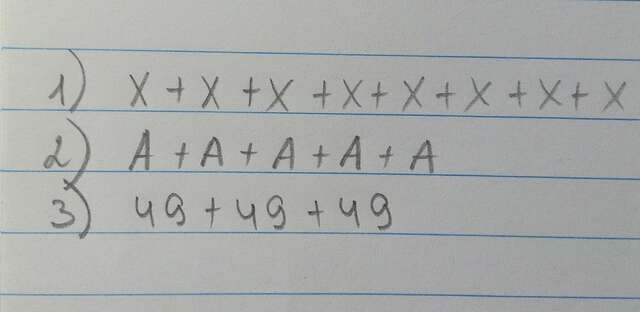 1) X + X + X + X + X + X + X + X
2) A + A + A + A + A
3) 49 + 49 + 49